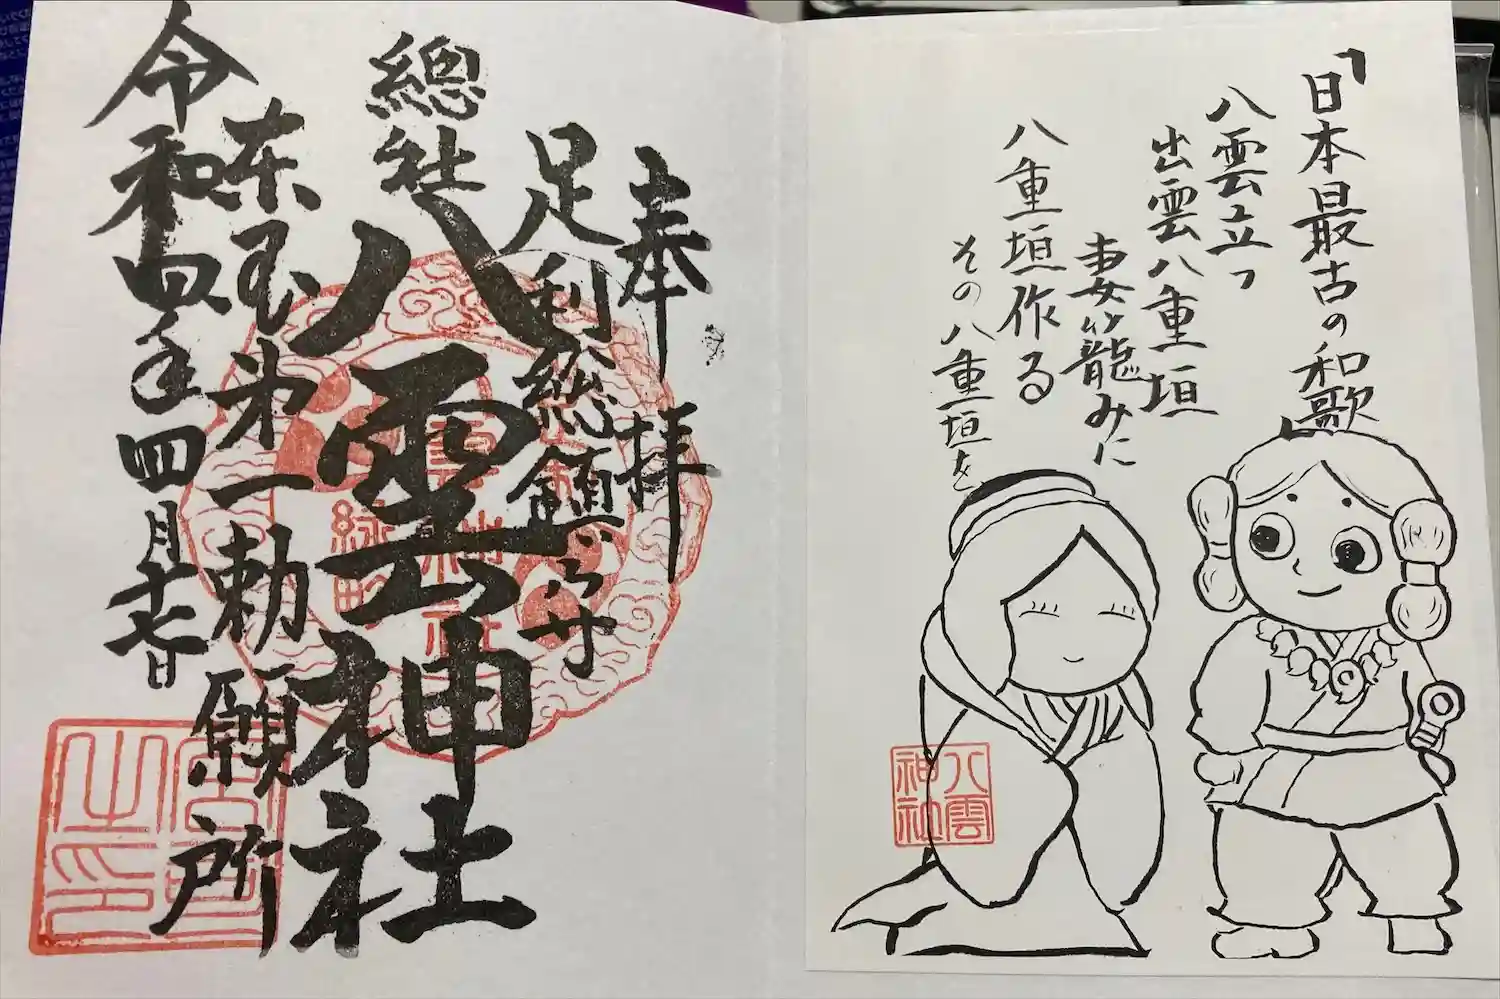 「日本最古の和歌」
八雲立つ
出雲八重垣
妻籠みに
八重垣作る
その八重垣を
八雲
神社
奉拝
足利総鎮守
總社
八雲神社
東国第一勅願所
令和四年四月十七日